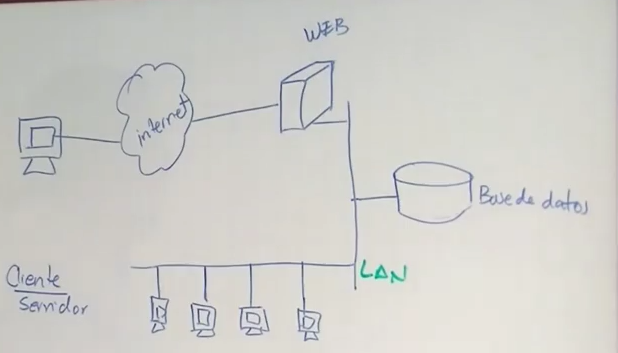 WEB
internet
Base de datos
LAN
Cliente
Servidor